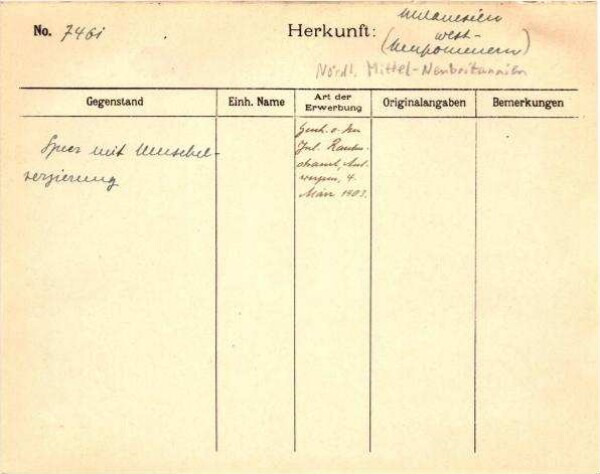 No. 7461
Herkunft: Melanesien
(West-
Neupommern)
Nördl. Mittel-Neubritannien
Gegenstand
Einh. Name
Art der
Erwerbung
Originalangaben
Bemerkungen
Speer mit Muschel-
verzierung
Gesch. v. Hn
Jul.
werpen, 4.
März 1903.